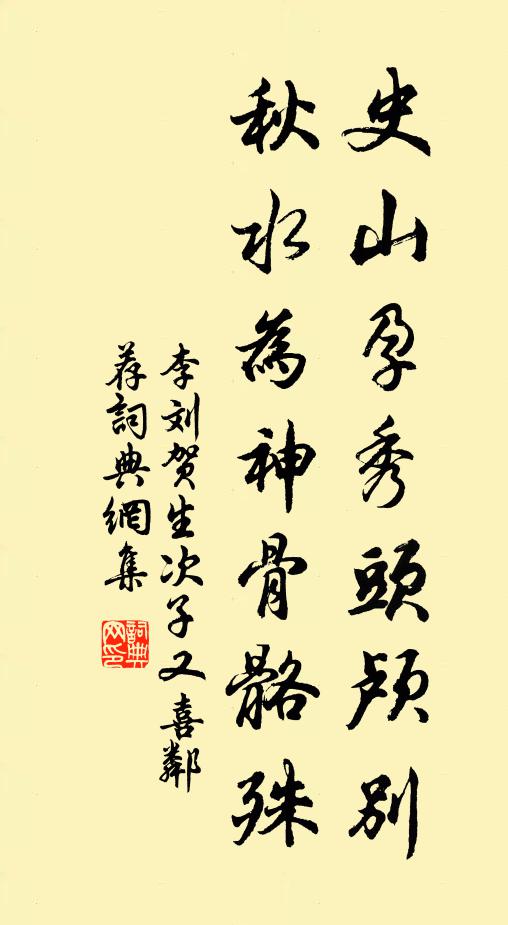 史山孕秀頭顱别
秋水為神骨骼殊
李刘贺生次子又喜鄰
荐詞典網集
詞典网印